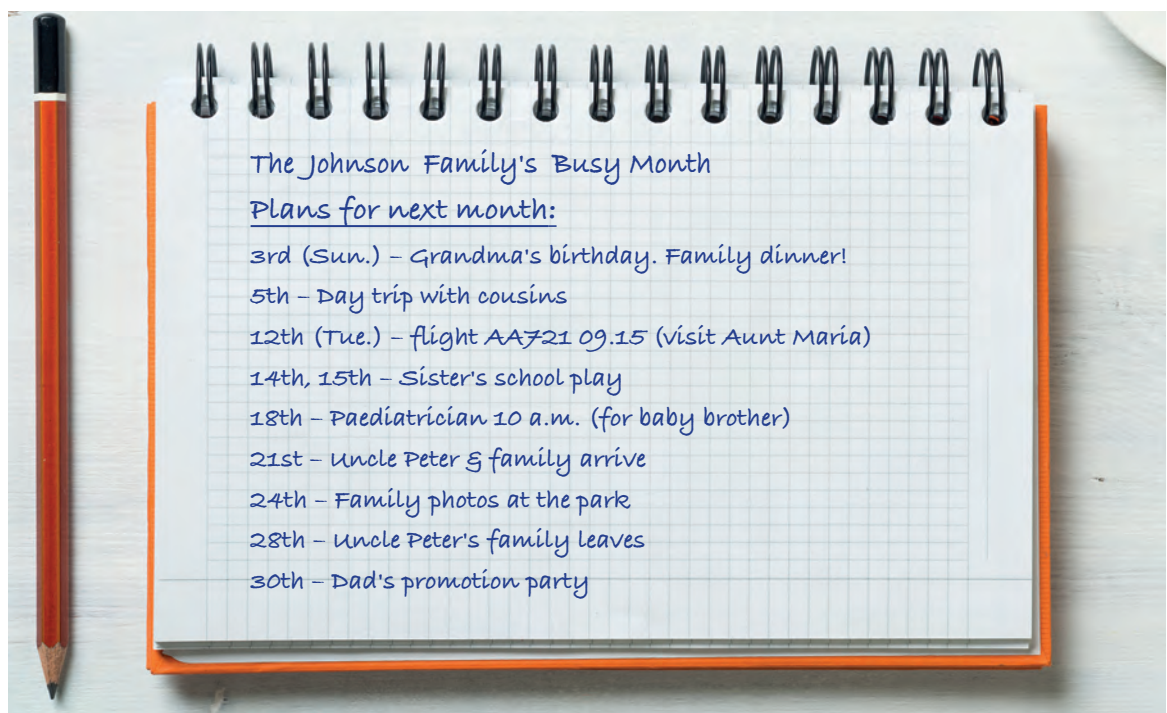 The Johnson Family's Busy Month
Plans for next month:
3rd (Sun.) – Grandma's birthday. Family dinner!
5th – Day trip with cousins
12th (Tue.) – flight AA721 09.15 (visit Aunt Maria)
14th, 15th – Sister's school play
18th – Paediatrician 10 a.m. (for baby brother)
21st – Uncle Peter & family arrive
24th – Family photos at the park
28th – Uncle Peter's family leaves
30th – Dad's promotion party